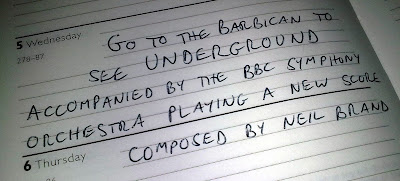 5 Wednesday
278–87
GO TO THE BARBICAN TO
SEE UNDERGROUND
ACCOMPANIED BY THE BBC SYMPHONY
ORCHESTRA PLAYING A NEW SCORE
6 Thursday
COMPOSED BY NEIL BRAND